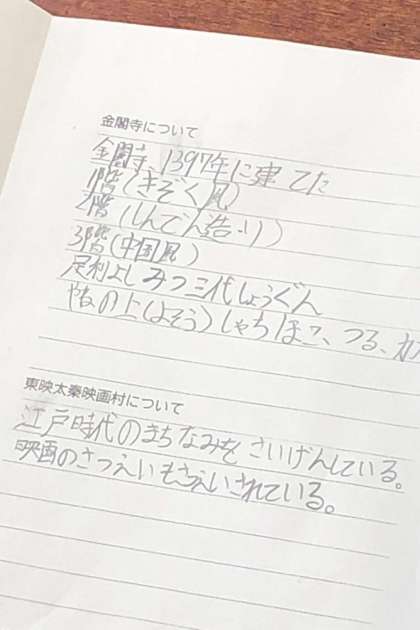 金閣寺について
金閣寺、1397年に建てた
1階(きぞく風)
2階(しんでん造り)
3階(中国風)
足利よしみつ三代しょうぐん
やねの上(よそう)しゃちほこ、つる、カ
東映太秦映画村について
江戸時代のまちなみをさいげんしている。
映画のさつえいもさえいされている。